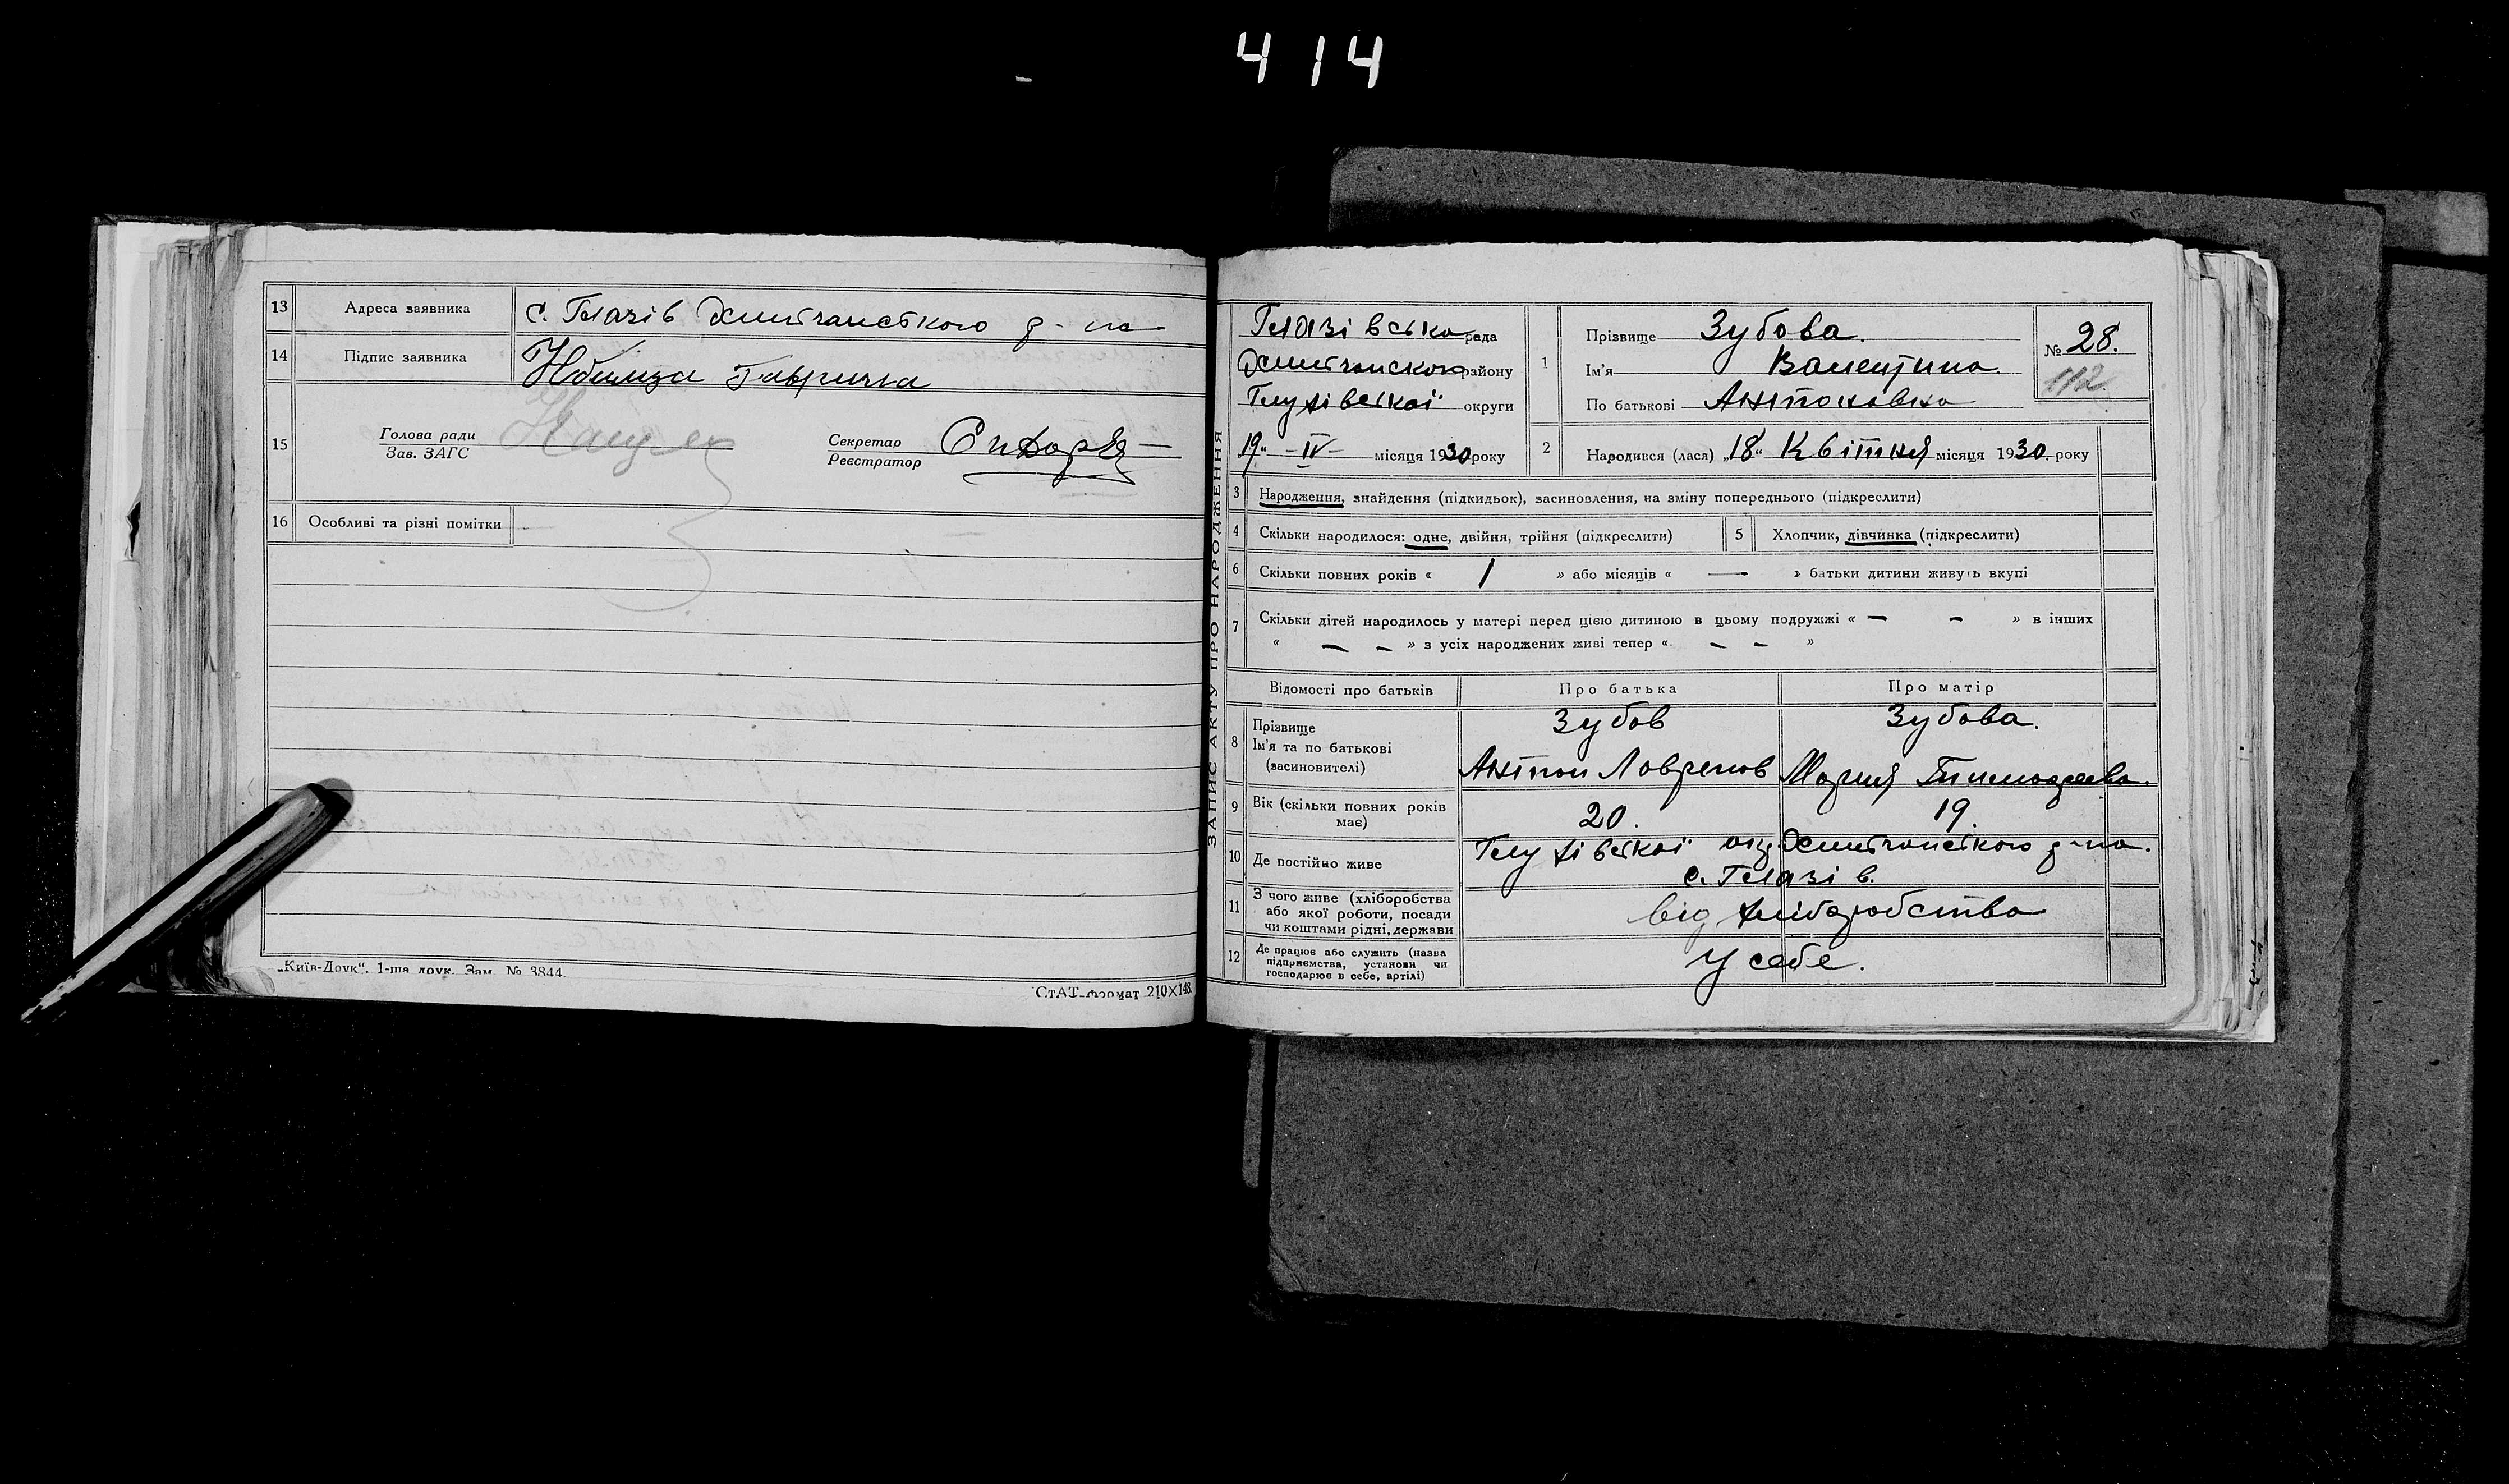 414
13 Адреса заявника с. Глазів Хильчанського р-на
14 Підпис заявника
15 Голова ради
Зав. ЗАГС
Секретар
Реєстратор
16 Особливі та різні помітки
„Київ-Друк“. 1-ша друк. Зам. № 3844.
СтАТ-формат 210×148
ЗАПИС АКТУ ПРО НАРОДЖЕННЯ
Глазівська рада
району
Глухівської округи
„19“ -IV- місяця 1930 року
1 Прізвище Зубова.
Ім'я Валентина.
По батькові Антоновна
№ 28.
112
2 Народився (лася) „18“ Квітня місяця 1930. року
3 Народження, знайдення (підкидьок), засиновлення, на зміну попереднього (підкреслити)
4 Скільки народилося: одне, двійня, трійня (підкреслити) 5 Хлопчик, дівчинка (підкреслити)
6 Скільки повних років « 1 » або місяців « — » батьки дитини живуть вкупі
7 Скільки дітей народилось у матері перед цією дитиною в цьому подружжі « — - » в інших
« — - » з усіх народжених живі тепер « - - »
Відомості про батьків Про батька Про матір
8 Прізвище Зубов Зубова.
Ім'я та по батькові
(засиновителі) Антон Лавренов Мария Тимофеева.
9 Вік (скільки повних років має) 20. 19.
10 Де постійно живе Глухівської окр. р-на.
с. Глазів.
11 З чого живе (хліборобства
або якої роботи, посади
чи коштами рідні, держави від хліборобства
12 Де працює або служить (назва
підприємства, установи чи
господарює в себе, артілі) У себе.